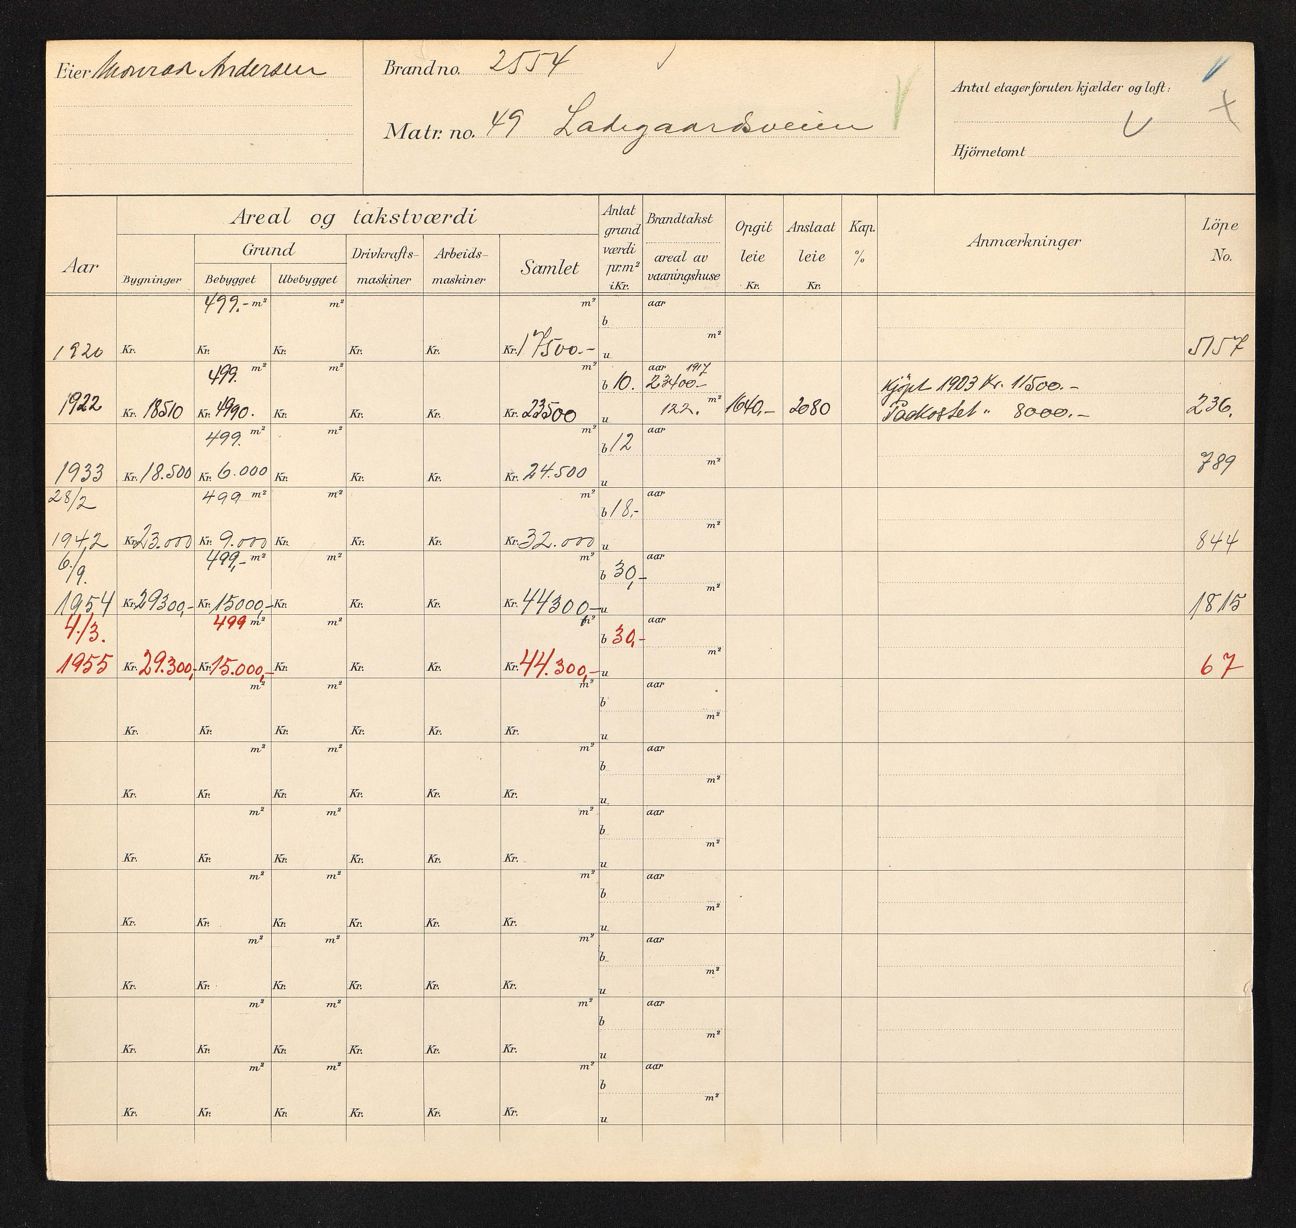 Eier Monrad Andersen
Brand no. 2554
Matr. no. 49 Ladegaardsveien
Antal etager foruten kjælder og loft:
Hjörnetomt
Areal og takstværdi
Aar
Bygninger
Grund
Bebygget
Ubebygget
Drivkrafts-
maskiner
Arbeids-
maskiner
Samlet
Antat
grund
værdi
pr.m²
i Kr.
Brandtakst
areal av
vaaningshuse
Opgit
leie
Kr.
Anslaat
leie
Kr.
Kap.
%
Anmærkninger
Löpe
No.
499.- m² m² m² b aar
1920 Kr. Kr. Kr. Kr. Kr. Kr. 17500.- u m² 5157
499. m² m² m² b 10. aar 1917 23400.- Kjöpt 1903 Kr. 11500.-
1922 Kr. 18510 Kr. 4990. Kr. Kr. Kr. Kr. 23500 u 122. m² 1640,- 2080 Paakostet " 8000.- 236.
499. m² m² m² b 12 aar
1933 Kr. 18.500 Kr. 6.000 Kr. Kr. Kr. Kr. 24.500 u m² 789
28/2 499 m² m² m² b 18,- aar
1942 Kr. 23.000 Kr. 9.000 Kr. Kr. Kr. Kr. 32.000 u m² 844
6/9. 499,- m² m² m² b 30,- aar
1954 Kr. 29300,- Kr. 15000,- Kr. Kr. Kr. Kr. 44300,- u m² 1815
4./3. 499 m² m² m² b 30,- aar
1955 Kr. 29.300,- Kr. 15.000,- Kr. Kr. Kr. Kr. 44.300,- u m² 67
m² m² m² b aar
Kr. Kr. Kr. Kr. Kr. Kr. u m²
m² m² m² b aar
Kr. Kr. Kr. Kr. Kr. Kr. u m²
m² m² m² b aar
Kr. Kr. Kr. Kr. Kr. Kr. u m²
m² m² m² b aar
Kr. Kr. Kr. Kr. Kr. Kr. u m²
m² m² m² b aar
Kr. Kr. Kr. Kr. Kr. Kr. u m²
m² m² m² b aar
Kr. Kr. Kr. Kr. Kr. Kr. u m²
m² m² m² b aar
Kr. Kr. Kr. Kr. Kr. Kr. u m²